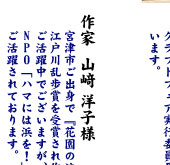 クラフトフェア実行委
います。
作家 山﨑 洋子様
宮津市ご出身で『花園の
江戸川乱歩賞を受賞され
ご活躍中でございますが、
NPO「ハマには浜を！
ご活躍されております。